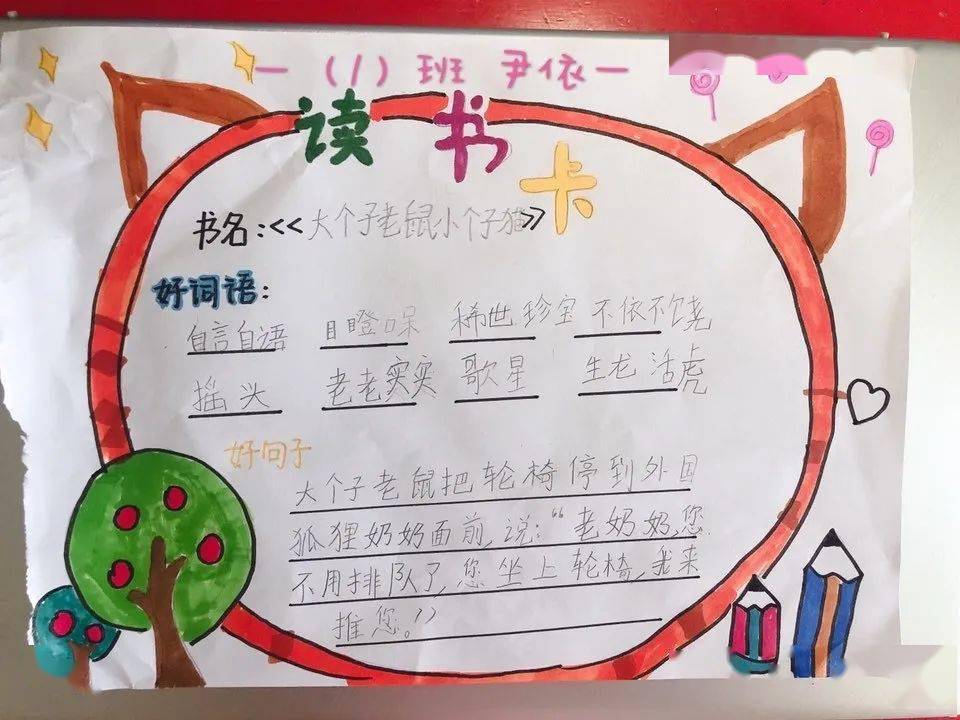 一(1)班 尹依一
读书卡
书名:《大个子老鼠小个子猫》
好词语:
自言自语 目瞪口呆 稀世珍宝 不依不饶
摇头 老老实实 歌星 生龙活虎
好句子
大个子老鼠把轮椅停到外国
狐狸奶奶面前,说:“老奶奶,您
不用排队了,您坐上轮椅,我来
推您。”